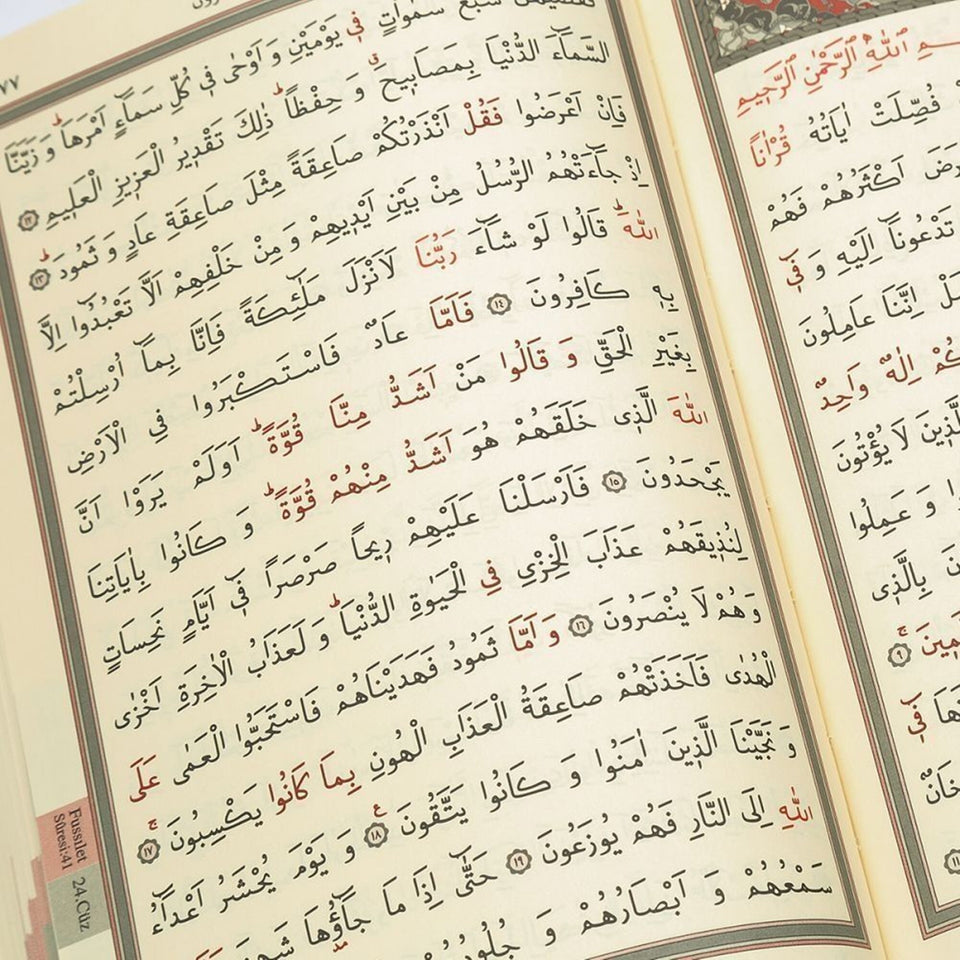 اللهِ الرَّحْمٰنِ الرَّحٖيمِ
فُصِّلَتْ اٰيَاتُهُ قُرْاٰناً
اَكْثَرُهُمْ فَهُمْ
تَدْعُونَٓا اِلَيْهِ وَ فٖٓي
اِنَّنَا عَامِلُونَ
اِلٰهٌ وَاحِدٌ
لَا يُؤْتُونَ
وَ عَمِلُوا
بِالَّذٖى
٩
فٖي
١١
٧٧
سَبْعَ سَمٰوَاتٍ فٖي يَوْمَيْنِ وَ اَوْحٰى فٖي كُلِّ سَمَٓاءٍ اَمْرَهَاؕ وَ زَيَّنَّا
السَّمَٓاءَ الدُّنْيَا بِمَصَابٖيحَۗ وَ حِفْظاًؕ ذٰلِكَ تَقْدٖيرُ الْعَزٖيزِ الْعَلٖيمِ ١٢
فَاِنْ اَعْرَضُوا فَقُلْ اَنْذَرْتُكُمْ صَاعِقَةً مِثْلَ صَاعِقَةِ عَادٍ وَ ثَمُودَؕ ١٣
اِذْ جَٓاءَتْهُمُ الرُّسُلُ مِنْ بَيْنِ اَيْدٖيهِمْ وَ مِنْ خَلْفِهِمْ اَلَّا تَعْبُدُٓوا اِلَّا
اللّٰهَؕ قَالُوا لَوْ شَٓاءَ رَبُّنَا لَاَنْزَلَ مَلٰٓئِكَةً فَاِنَّا بِمَٓا اُرْسِلْتُمْ
بِهٖ كَافِرُونَ ١٤ فَاَمَّا عَادٌ فَاسْتَكْبَرُوا فِي الْاَرْضِ
بِغَيْرِ الْحَقِّ وَ قَالُوا مَنْ اَشَدُّ مِنَّا قُوَّةًؕ اَوَلَمْ يَرَوْا اَنَّ
اللّٰهَ الَّذٖى خَلَقَهُمْ هُوَ اَشَدُّ مِنْهُمْ قُوَّةًؕ وَ كَانُوا بِاٰيَاتِنَا
يَجْحَدُونَ ١٥ فَاَرْسَلْنَا عَلَيْهِمْ رٖيحاً صَرْصَراً فٖٓي اَيَّامٍ نَحِسَاتٍ
لِنُذٖيقَهُمْ عَذَابَ الْخِزْيِ فِي الْحَيٰوةِ الدُّنْيَاؕ وَ لَعَذَابُ الْاٰخِرَةِ اَخْزٰى
وَ هُمْ لَا يُنْصَرُونَ ١٦ وَ اَمَّا ثَمُودُ فَهَدَيْنَاهُمْ فَاسْتَحَبُّوا الْعَمٰى عَلَى
الْهُدٰى فَاَخَذَتْهُمْ صَاعِقَةُ الْعَذَابِ الْهُونِ بِمَا كَانُوا يَكْسِبُونَۚ ١٧
وَ نَجَّيْنَا الَّذٖينَ اٰمَنُوا وَ كَانُوا يَتَّقُونَ ١٨ وَ يَوْمَ يُحْشَرُ اَعْدَٓاءُ
اللّٰهِ اِلَى النَّارِ فَهُمْ يُوزَعُونَ ١٩ حَتّٰٓى اِذَا مَا جَٓاؤُ۫هَا
سَمْعُهُمْ وَ اَبْصَارُهُمْ وَ
Fussılet
Sûresi:41
24.Cüz